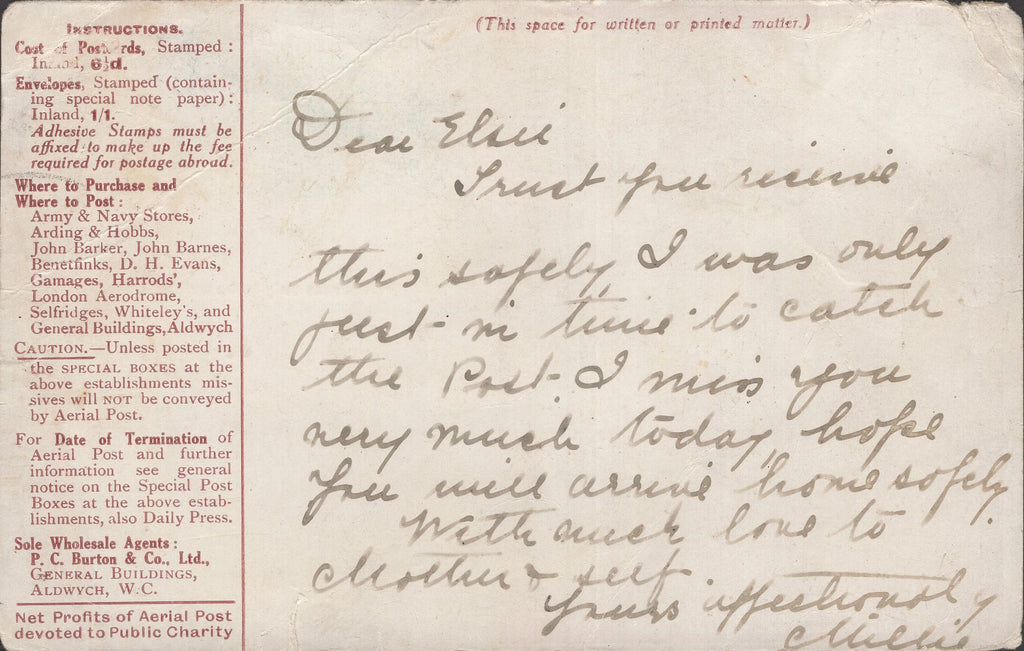 INSTRUCTIONS.
Cost of Postcards, Stamped :
Inland, 6½d.
Envelopes, Stamped (contain-
ing special note paper) :
Inland, 1/1.
Adhesive Stamps must be
affixed to make up the fee
required for postage abroad.
Where to Purchase and
Where to Post :
Army & Navy Stores,
Arding & Hobbs,
John Barker, John Barnes,
Benetfinks, D. H. Evans,
Gamages, Harrods',
London Aerodrome,
Selfridges, Whiteley's, and
General Buildings, Aldwych
CAUTION.—Unless posted in
the SPECIAL BOXES at the
above establishments mis-
sives will NOT be conveyed
by Aerial Post.
For Date of Termination of
Aerial Post and further
information see general
notice on the Special Post
Boxes at the above estab-
lishments, also Daily Press.
Sole Wholesale Agents :
P. C. Burton & Co., Ltd.,
GENERAL BUILDINGS,
ALDWYCH, W.C.
Net Profits of Aerial Post
devoted to Public Charity
(This space for written or printed matter.)
Dear Elsie
Trust you receive
this safely, I was only
just in time to catch
the Post. I miss you
very much today, hope
you will arrive home safely.
With much love to
Mother & self.
Yours affectionately
Millie